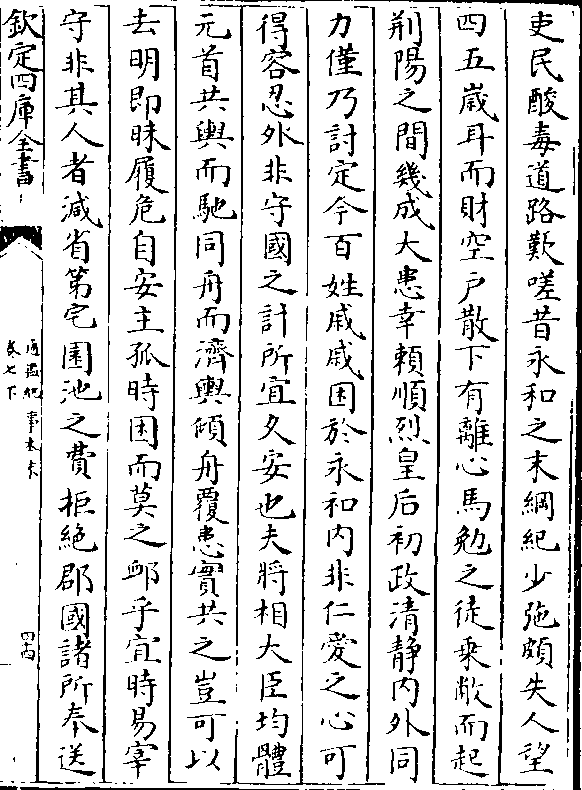 吏民酸毒道路歎嗟昔永和之末綱紀少弛頗失人望
四五嵗耳而財空户散下有離心馬勉之徒乗敝而起
荆陽之間幾成大患幸賴順烈皇后初政清静内外同
力僅乃討定今百姓戚戚困於永和内非仁愛之心可
得容忍外非守國之計所宜久安也夫將相大臣均體
元首共輿而馳同舟而濟輿傾舟覆患實共之豈可以
去明即昧履危自安主孤時困而莫之䘏乎宜時易宰
守非其人者減省第宅園池之費拒絶郡國諸所奉送
欽定四庫全書
通鑑紀事本末
卷七下